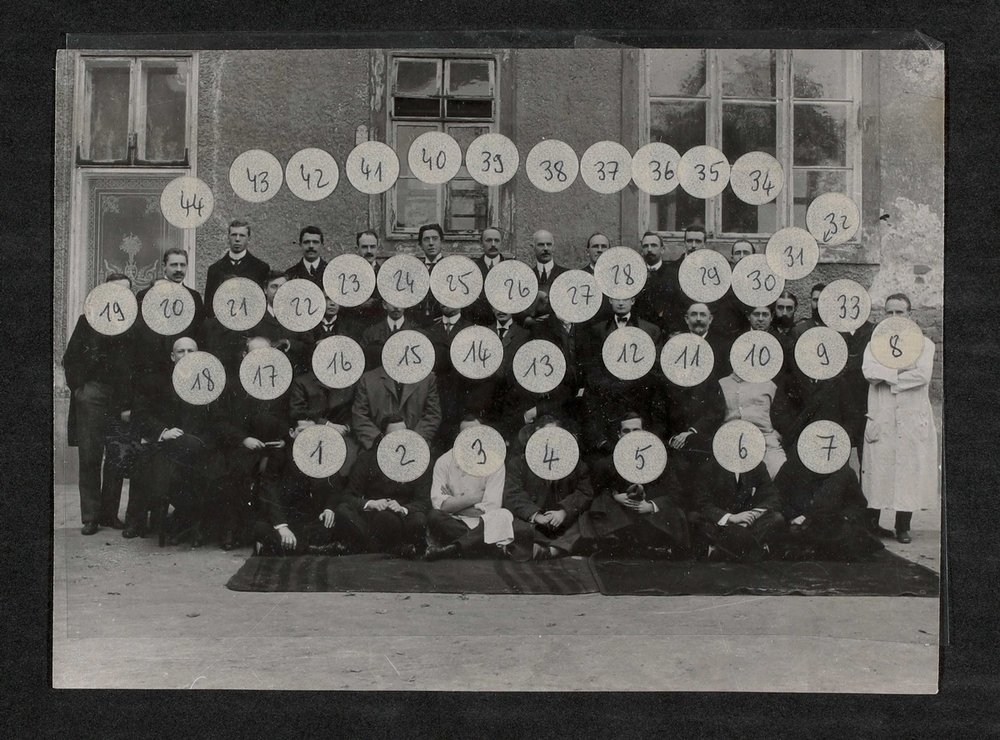 44 43 42 41 40 39 38 37 36 35 34
32
19 20 21 22 23 24 25 26 27 28 29 30 31 33
18 17 16 15 14 13 12 11 10 9 8
1 2 3 4 5 6 7